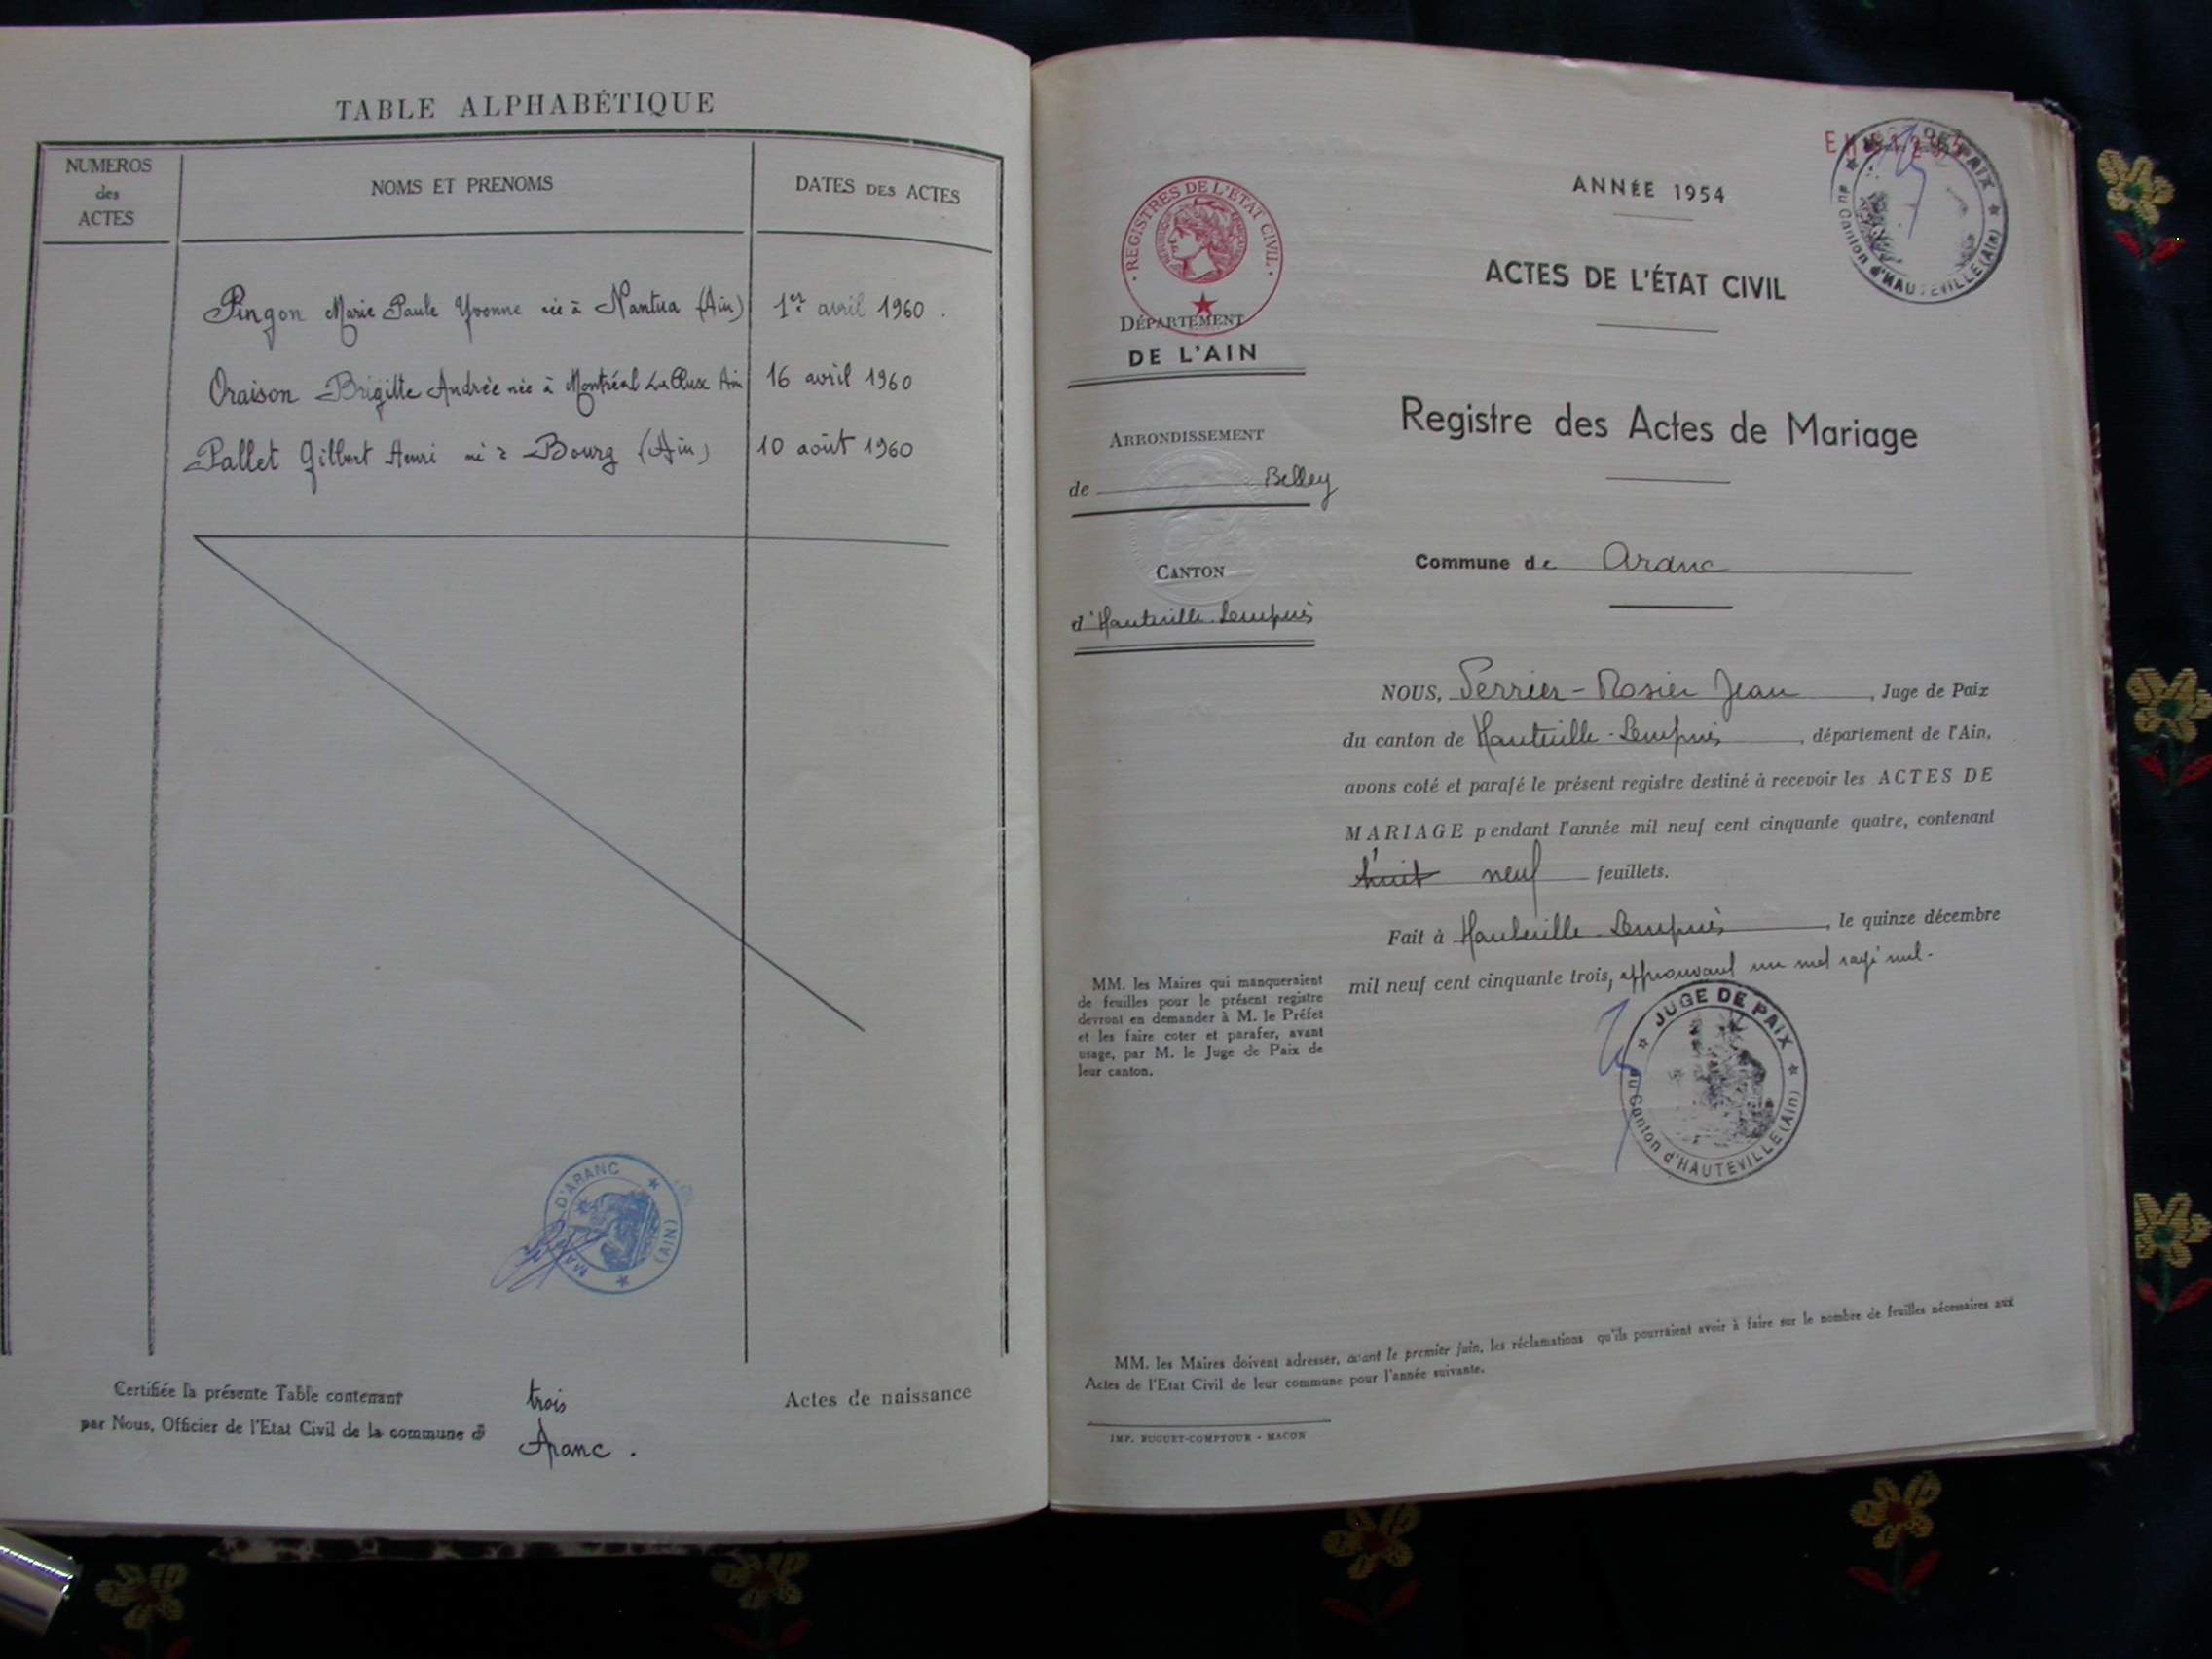 TABLE ALPHABÉTIQUE
NUMEROS
des
ACTES
NOMS ET PRENOMS
DATES DES ACTES
Pingon Marie Paule Yvonne née à Nantua (Ain) 1er avril 1960.
Oraison Brigitte Andrée née à Montréal La Cluse Ain 16 avril 1960
Pallet Gilbert Henri né à Bourg (Ain) 10 août 1960
D'ARANC
(AIN)
Certifiée la présente Table contenant trois Actes de naissance
par Nous, Officier de l'Etat Civil de la commune d Aranc.
REGISTRES DE L'ETAT CIVIL
DÉPARTEMENT
DE L'AIN
ARRONDISSEMENT
de Belley
CANTON
d'Hauteville-Lompnès
MM. les Maires qui manqueraient
de feuilles pour le présent registre
devront en demander à M. le Préfet
et les faire coter et parafer, avant
usage, par M. le Juge de Paix de
leur canton.
DE PAIX
du Canton d'HAUTEVILLE (Ain)
ANNÉE 1954
ACTES DE L'ÉTAT CIVIL
Registre des Actes de Mariage
Commune de Aranc
NOUS, Perrier-Rosier Jean, Juge de Paix
du canton de Hauteville-Lompnès, département de l'Ain,
avons coté et parafé le présent registre destiné à recevoir les ACTES DE
MARIAGE pendant l'année mil neuf cent cinquante quatre, contenant
huit neuf feuillets.
Fait à Hauteville-Lompnès, le quinze décembre
mil neuf cent cinquante trois, approuvant un mot rayé nul.
JUGE DE PAIX
du Canton d'HAUTEVILLE (Ain)
MM. les Maires doivent adresser, avant le premier juin, les réclamations qu'ils pourraient avoir à faire sur le nombre de feuilles nécessaires aux
Actes de l'Etat Civil de leur commune pour l'année suivante.
IMP. BUGUET-COMPTOUR - MACON